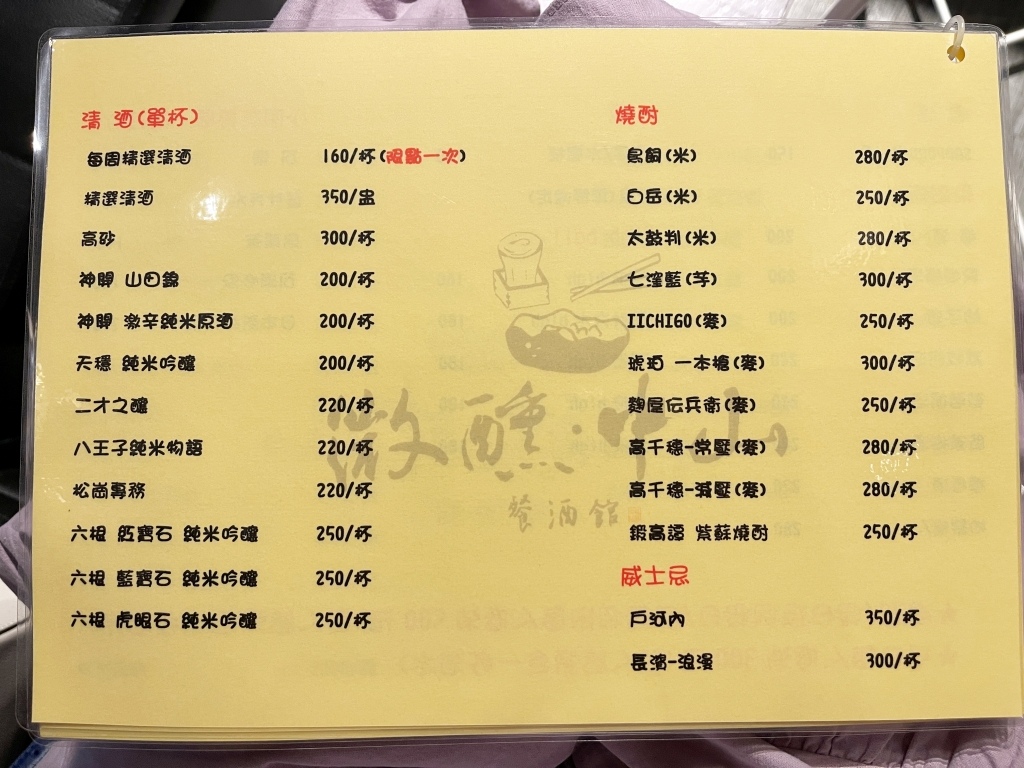 清 酒(單杯)
每周精選清酒 160/杯(限點一次)
精選清酒 350/盅
高砂 300/杯
神開 山田錦 200/杯
神開 激辛純米原酒 200/杯
天穩 純米吟釀 200/杯
二才之釀 220/杯
八王子純米物語 220/杯
松尚專務 220/杯
六根 紅寶石 純米吟釀 250/杯
六根 藍寶石 純米吟釀 250/杯
六根 虎眼石 純米吟釀 250/杯
燒酎
鳥飼(米) 280/杯
白岳(米) 250/杯
太鼓判(米) 280/杯
七窪藍(芋) 300/杯
IICHIGO(麥) 250/杯
琥珀 一本槍(麥) 300/杯
麴屋伝兵衛(麥) 250/杯
高千穗-常壓(麥) 280/杯
高千穗-減壓(麥) 280/杯
鍛高譚 紫蘇燒酎 250/杯
威士忌
戶河內 350/杯
長濱-浪漫 300/杯
微醺·中山
餐酒館